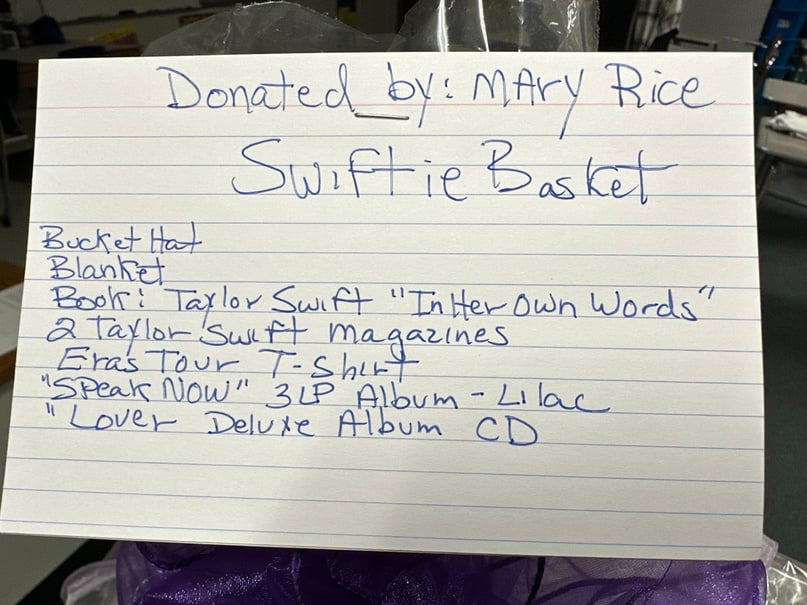 Donated by: MAry Rice
Swiftie Basket
Bucket Hat
Blanket
Book: Taylor Swift "In Her Own Words"
2 Taylor Swift magazines
Eras Tour T-Shirt
"Speak Now" 3LP Album - Lilac
"Lover Deluxe Album CD